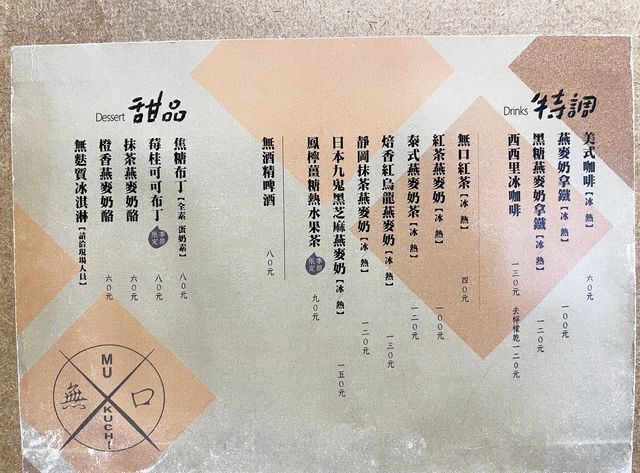 Drinks 特調
美式咖啡【冰 熱】 六〇元
燕麥奶拿鐵【冰 熱】 一〇〇元
黑糖燕麥奶拿鐵【冰 熱】 一二〇元
西西里冰咖啡 一三〇元 去檸檬乾一二〇元
無口紅茶【冰 熱】 四〇元
紅茶燕麥奶【冰 熱】 一〇〇元
泰式燕麥奶茶【冰 熱】 一二〇元
焙香紅烏龍燕麥奶【冰 熱】 一三〇元
靜岡抹茶燕麥奶【冰 熱】 一二〇元
日本九鬼黑芝麻燕麥奶【冰 熱】 一五〇元
鳳檸薑糖熱水果茶 季節限定 九〇元
無酒精啤酒 八〇元
Dessert 甜品
焦糖布丁【全素 蛋奶素】 八〇元
莓桂可可布丁 季節限定 八〇元
抹茶燕麥奶酪 六〇元
橙香燕麥奶酪 六〇元
無麩質冰淇淋【請洽現場人員】
MU
無 口
KUCHI